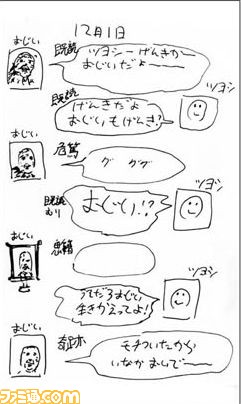 12月1日
おじい
既読
ツヨシーげんきかー
おじいだよーー
ツヨシ
既読
げんきだよ
おじいもげんき?
おじい
危篤
グ ググ
ツヨシ
既読
むり
おじい!?
おじい
ツヨシ
うそだろおじい
生きかえってよ!
おじい
奇跡
モチついたから
いなかおいでー
ファミ通.com